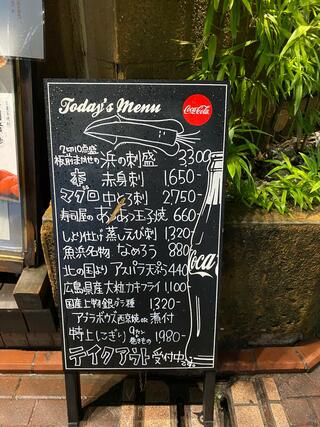 Today's Menu
Coca-Cola
7切10点盛
板前まかせの 浜の刺盛 3300
赤身刺 1650-
マグロ 中とろ刺 2,750-
寿司屋の 玉子焼 660-
しより仕上げ 蒸しえび刺 1320-
魚浜名物 なめろう 880
北の国より アスパラ天ぷら 440
広島県産 大粒カキフライ 1,100-
国産上物 銀ダラ種 1320-
アブラボウズ 西京焼 or 煮付
特上にぎり 9カン 巻きもの 1980-
テイクアウト 受付中
Coca